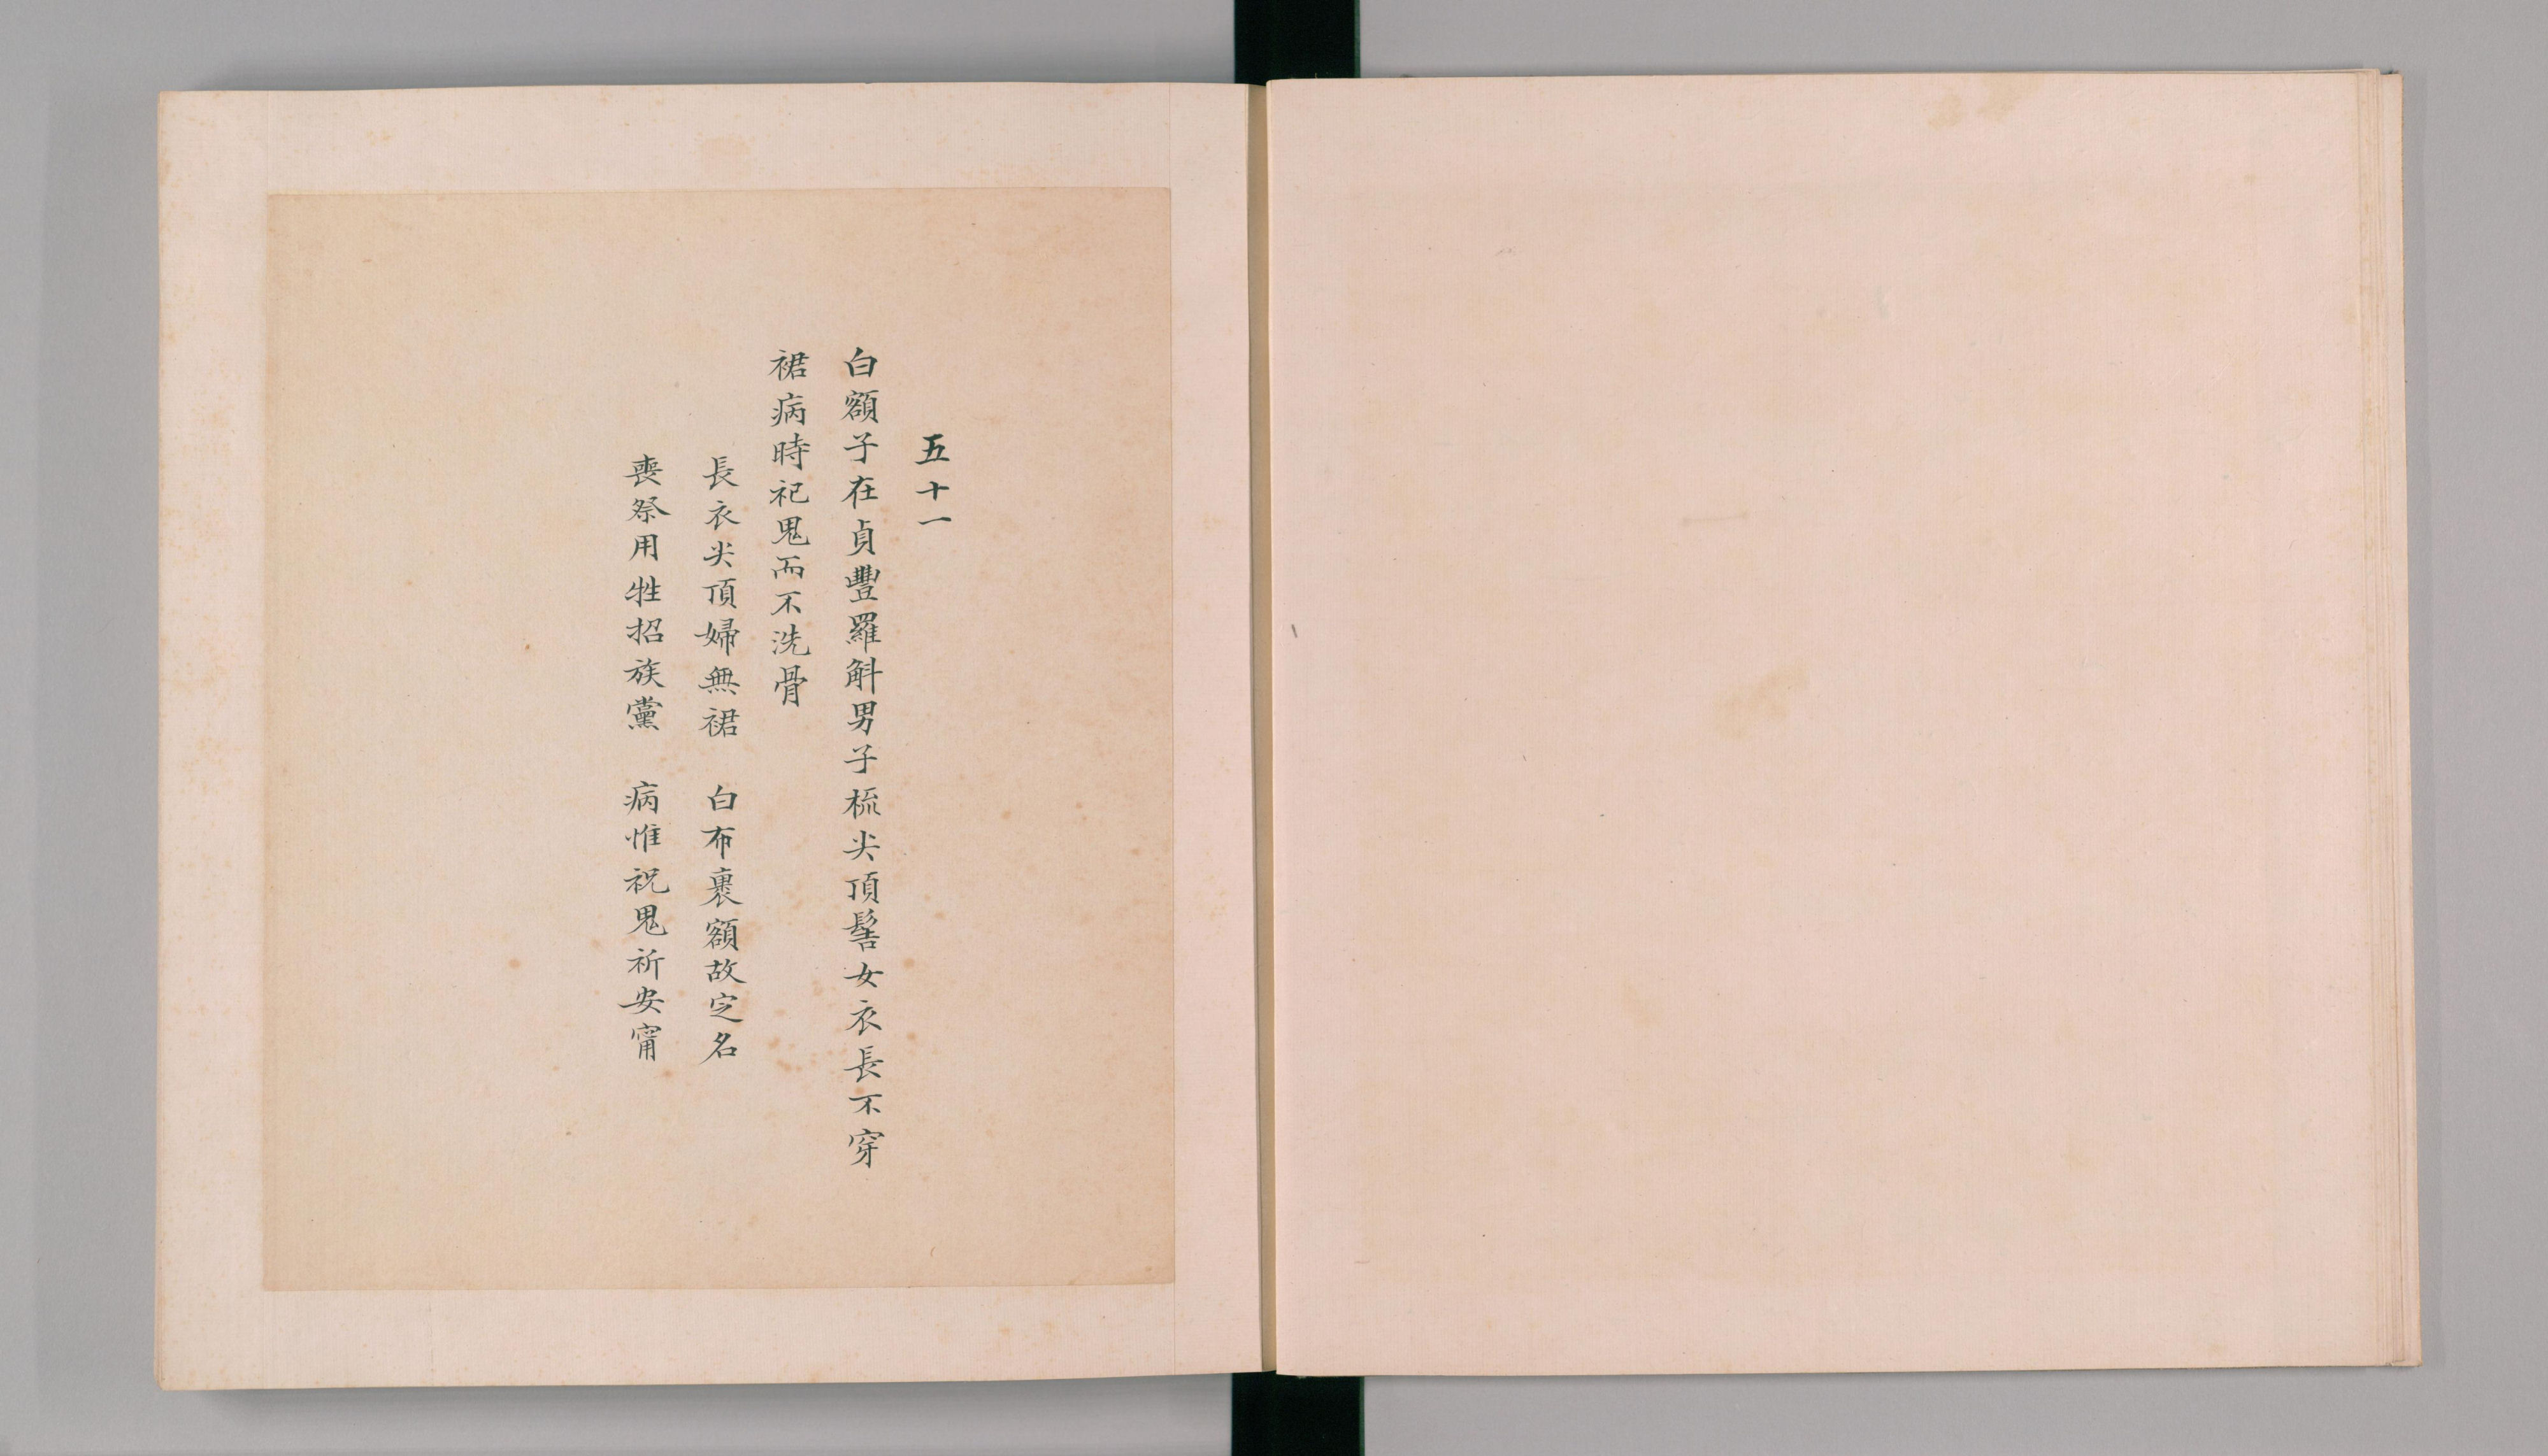 五十一
白額子在貞豐羅斛男子梳尖頂髻女衣長不穿
裙病時祀鬼而不洗骨
長衣尖頂婦無裙　白布裹額故定名
喪祭用牲招族黨　病惟祝鬼祈安甯